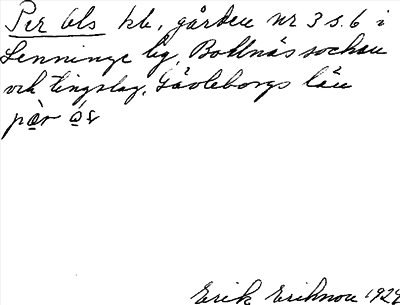 Per Ols kb, gården nr 3 s. 6 i
Lenninge by, Bollnäs sochen
och tingslag, Gävleborgs län
pær ós
Erik Eriksson 1929